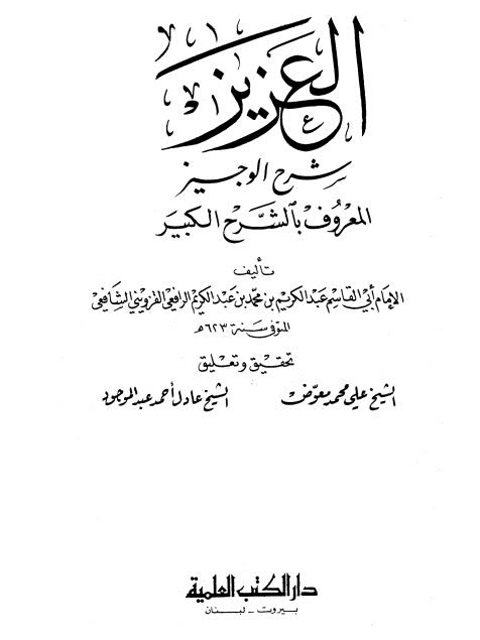 العزيز
شرح الوجيز
المعروف بالشرح الكبير
تأليف
الإمام أبي القاسم عبد الكريم بن محمد بن عبد الكريم الرافعي القزويني الشافعي
المتوفى سنة ٦٢٣ هـ
تحقيق وتعليق
الشيخ علي محمد معوض الشيخ عادل أحمد عبد الموجود
دار الكتب العلمية
بيروت - لبنان